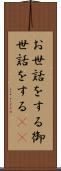 お世話をする御
世話をする《《